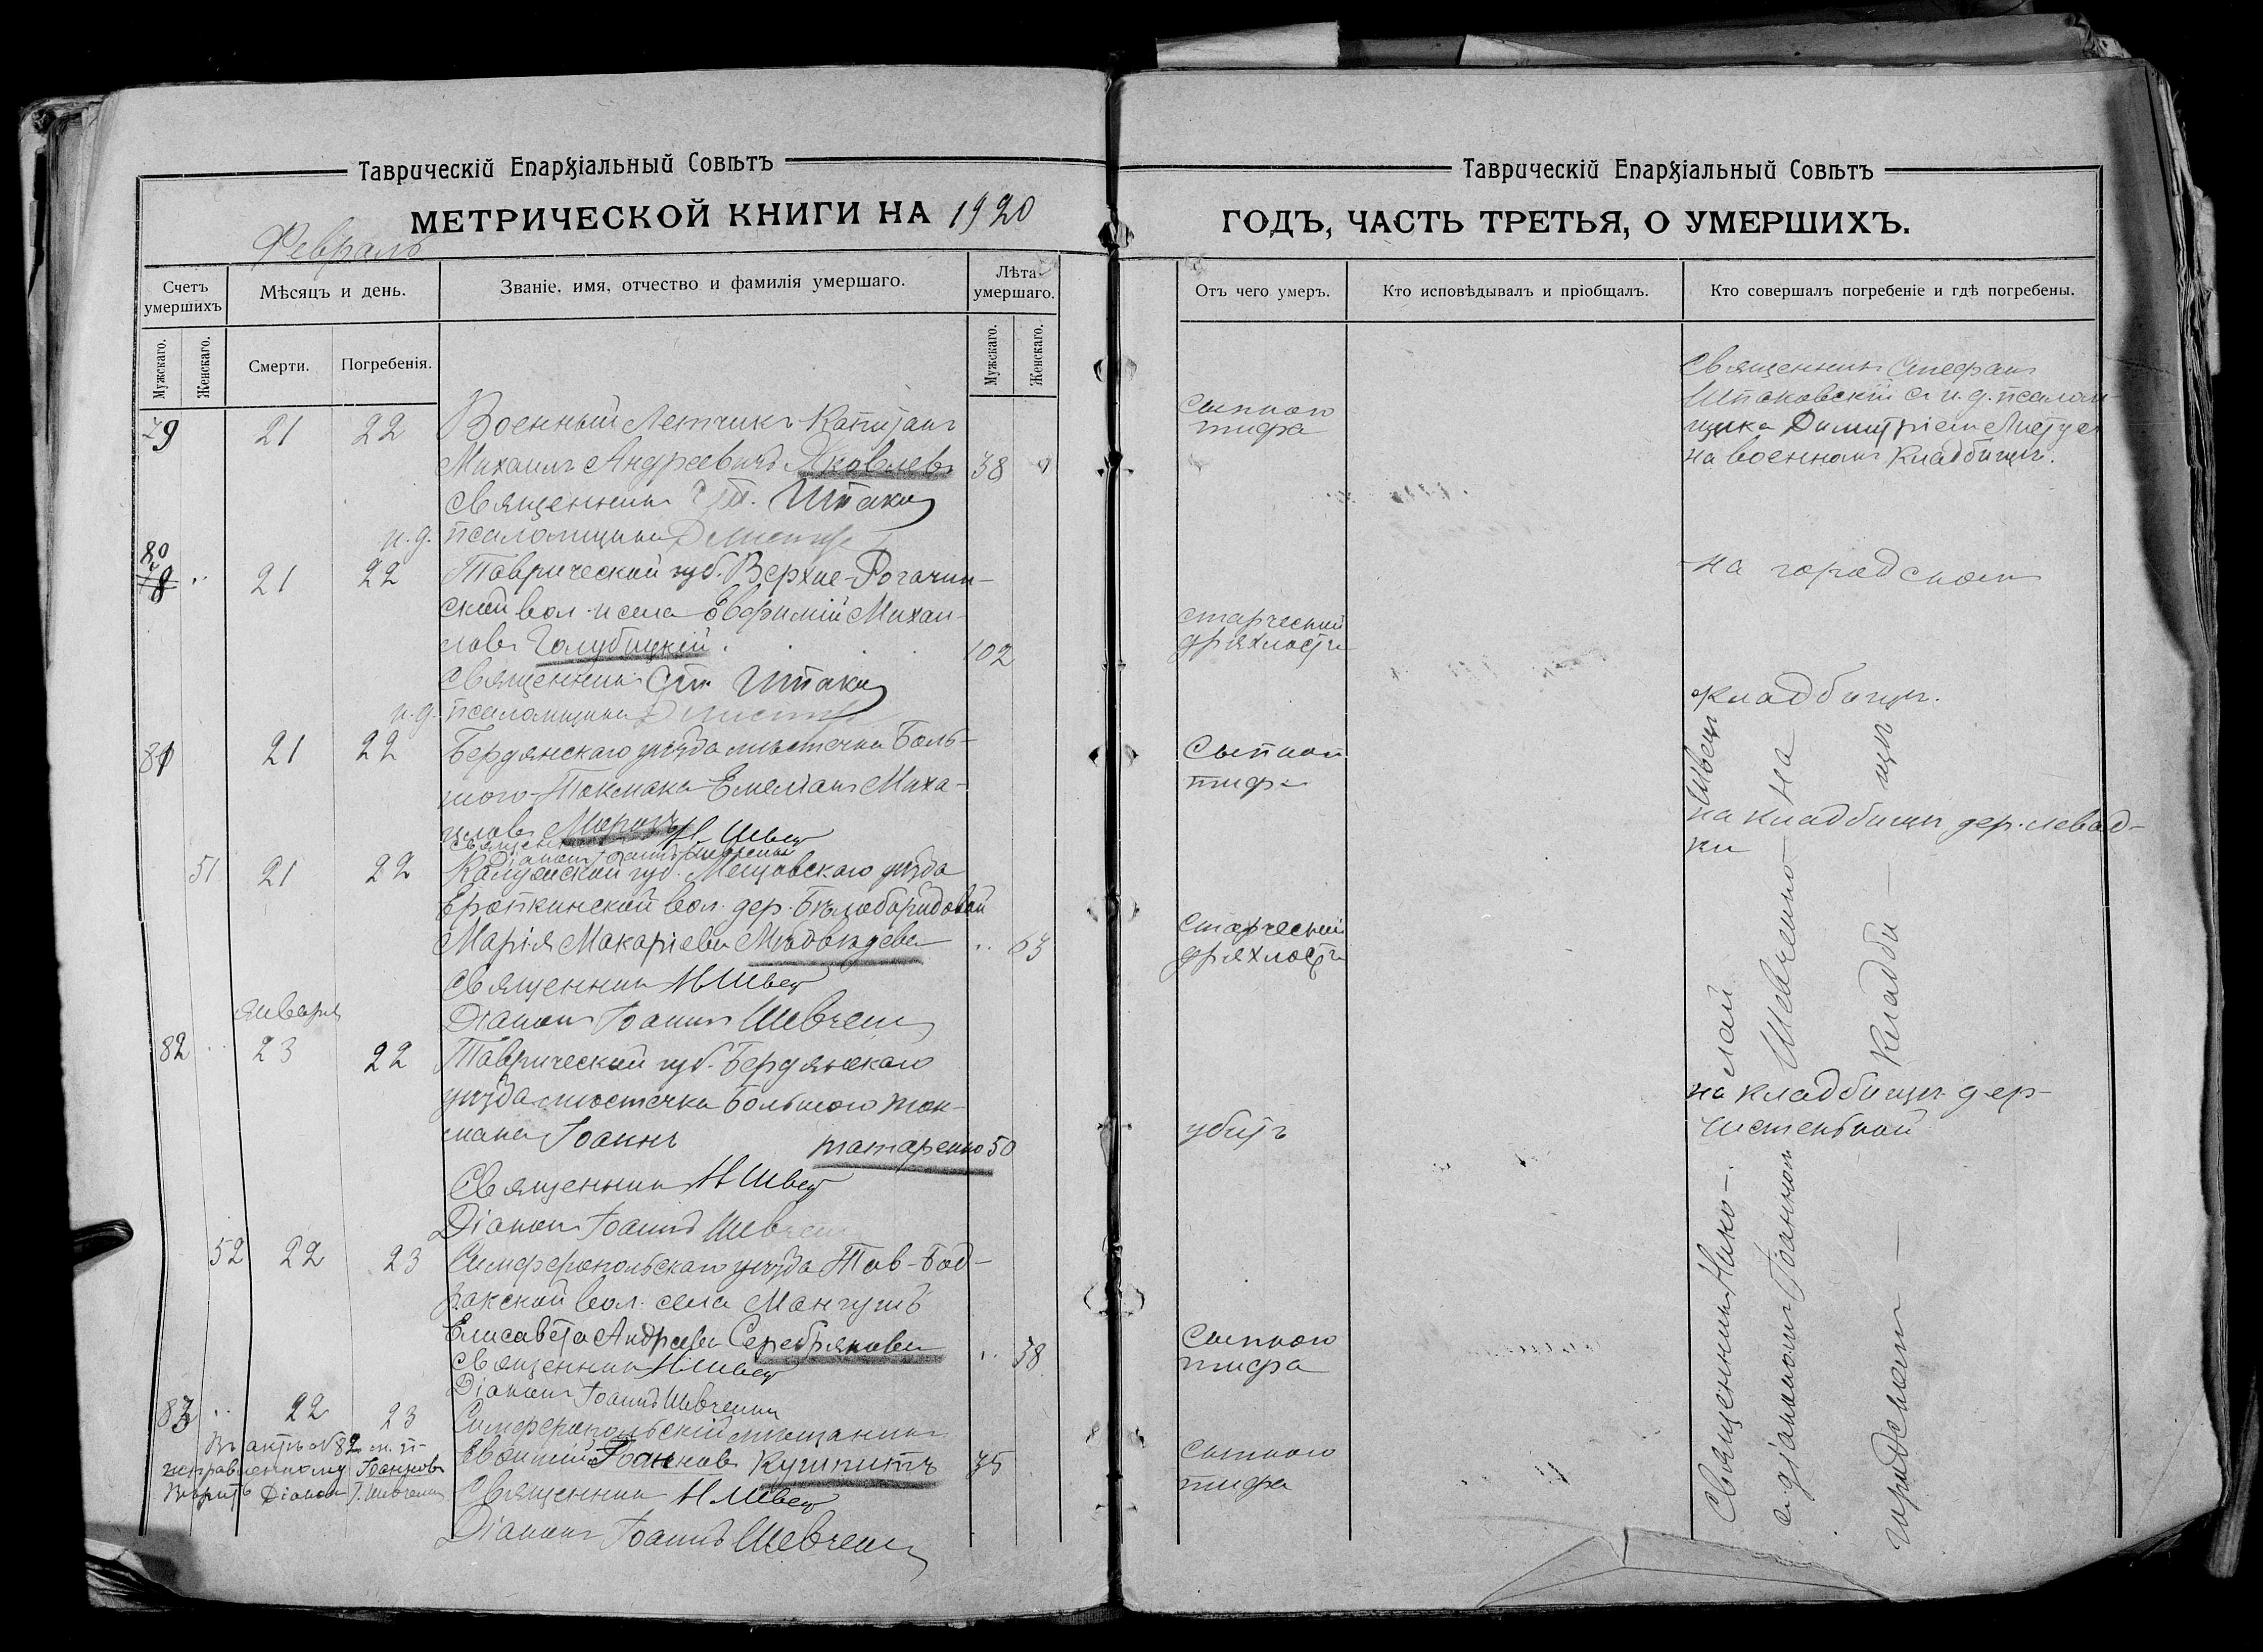 Таврическій Епархіальный Совѣтъ
МЕТРИЧЕСКОЙ КНИГИ НА 1920
Февраль
Счетъ умершихъ
Мѣсяцъ и день.
Званіе, имя, отчество и фамилія умершаго.
Лѣта умершаго.
Мужскаго.
Женскаго.
Смерти.
Погребенія.
Мужскаго.
Женскаго.
79 21 22 Военный Летчикъ Капитанъ
Михаилъ Андреевичъ Яковлевъ 38
священникъ Ст. Шпаков
и.д. псаломщика
80 21 22 Таврической губ. Верхне-Рогачик-
ской вол. и села Евфимій Михаи-
ловъ Голубицкій 102
Священникъ Ст. Шпаков
и.д. псаломщика
81 21 22 Бердянскаго уѣзда мѣстечка Боль-
шого-Токмака Емеліанъ Миха-
иловъ Н. Швец
священ
Діаконъ Іоаннъ Шевченко
51 21 22 Калужской губ. Мещовскаго уѣзда
Еропкинской вол. дер.
Марія Макаріева 63
священникъ Н Швец
Діаконъ Іоаннъ Шевченко
января
82 23 22 Таврической губ. Бердянскаго
уѣзда мѣстечка Большого Ток-
мака Іоаннъ Татаренко 50
Священникъ Н Швец
Діаконъ Іоаннъ Шевчен
52 22 23 Симферопольскаго уѣзда Тав-Бод-
ракской вол. села Мангушъ
Елисавета Андреева Серебрякова 38
священникъ Н Швец
Діаконъ Іоаннъ Шевченко
83 22 23 Симферопольскій мѣщанинъ
Іоанновъ 35
Священникъ Н Швец
Діаконъ Іоаннъ Шевченко
Въ актѣ № 82
исправленному Іоанновъ
вѣрить Діаконъ І. Шевченко
Таврическій Епархіальный Совѣтъ
ГОДЪ, ЧАСТЬ ТРЕТЬЯ, О УМЕРШИХЪ.
Отъ чего умеръ.
Кто исповѣдывалъ и пріобщалъ.
Кто совершалъ погребеніе и гдѣ погребены.
Сыпного
тифа
Священникъ Стефанъ
Шпаковскій съ и.д. псалом-
щика Димитріемъ
на военномъ кладбищѣ.
старческой
дряхлости
на городскомъ
кладбищѣ.
Сыпной
тифъ
на кладбищѣ дер. Левад-
ки
старческой
дряхлости
убитъ
на кладбищѣ дер.
Сыпного
тифа
Сыпного
тифа
Священникъ Нико-
лай Швецъ
съ діакономъ Іоанномъ
Шевченко на
городскомъ
кладби-
щѣ